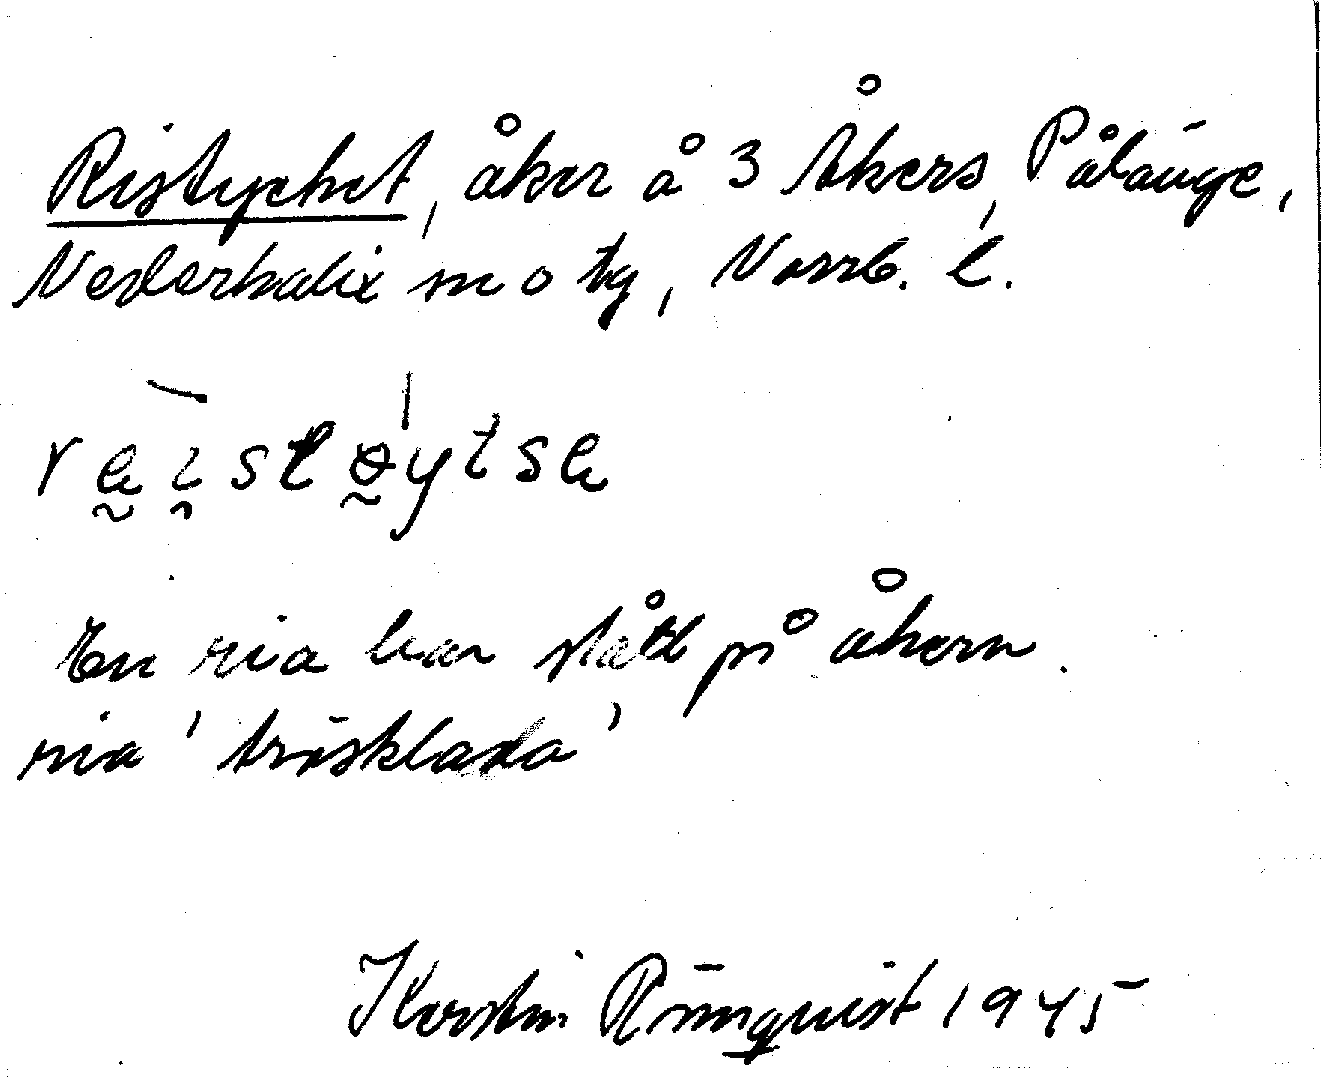 Ristycket, åker å 3 Åkers, Pålänge,
Nederkalix sn o tg, Norrb. l.
En ria har stått på åkern.
ria 'trösklada'
Kerstin Rönnquist 1945